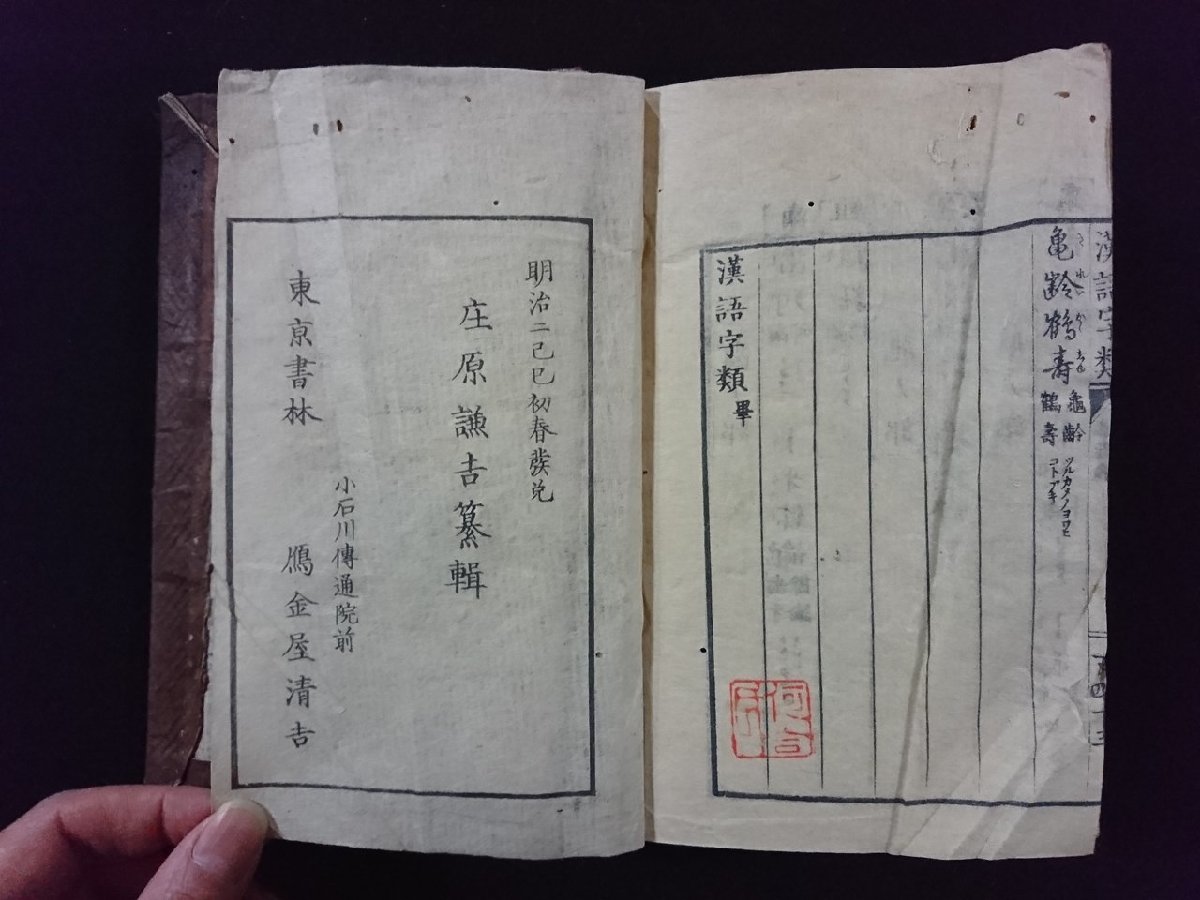 漢語字類
亀齢鶴壽
龜齡 ツルカメノヨワヒ
鶴壽 コトブキ
漢語字類 畢
明治二己巳初春發兌
庄原謙吉纂輯
小石川傳通院前
東京書林 鴈金屋清吉